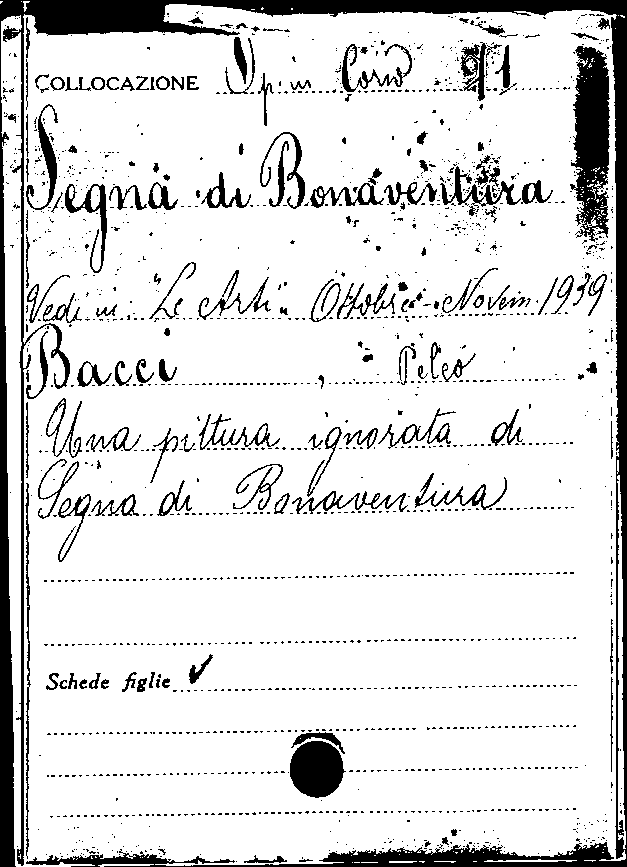 COLLOCAZIONE Op. in Corso 91
Segna di Bonaventura
Vedi in "Le Arti". Ottobre-Novem. 1939
Bacci, Peleo
Una pittura ignorata di
Segna di Bonaventura
Schede figlie ✓